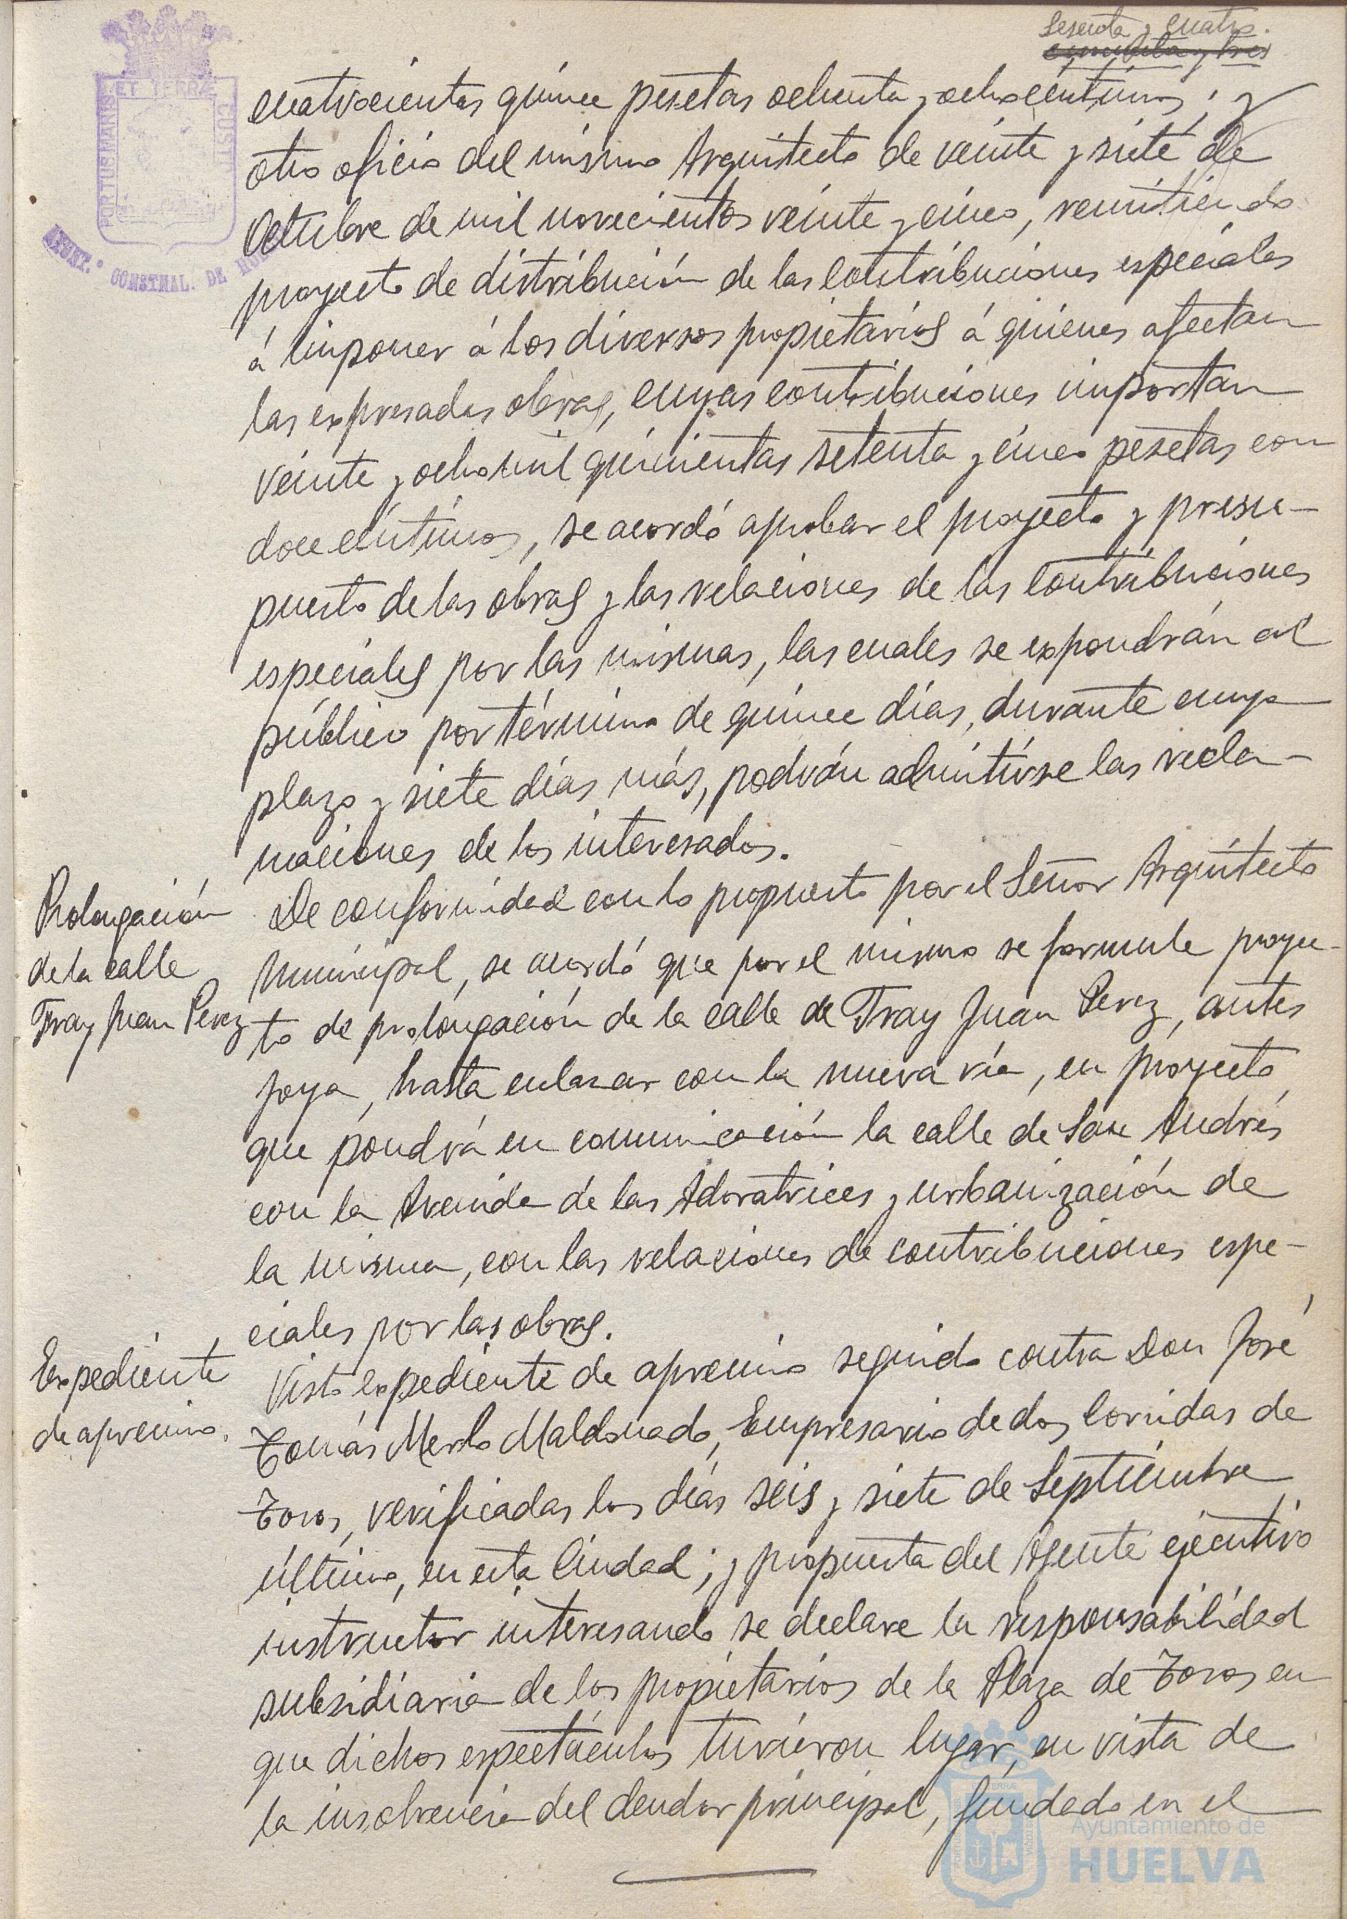 Sesenta y cuatro.
cincuenta y tres
PORTUS MARIS ET TERRÆ CUSTO
AYUNT.º CONSTNAL. DE HUELVA
cuatrocientas quince pesetas ochenta y ocho céntimos; y
otro oficio del mismo Arquitecto de veinte y siete de
Octubre de mil novecientos veinte y cinco, remitiendo
proyecto de distribución de las contribuciones especiales
á imponer á los diversos propietarios á quienes afectan
las expresadas obras, cuyas contribuciones importan
veinte y ocho mil quinientas setenta y cinco pesetas con
doce céntimos, se acordó aprobar el proyecto y presu-
puesto de las obras y las relaciones de las contribuciones
especiales por las mismas, las cuales se expondrán al
público por término de quince días, durante cuyo
plazo y siete días más, podrán admitirse las recla-
maciones de los interesados.
Prolongación
de la calle
Fray Juan Perez
De conformidad con lo propuesto por el Señor Arquitecto
Municipal, se acordó que por el mismo se formule proyec-
to de prolongación de la calle de Fray Juan Perez, antes
Joya, hasta enlazar con la nueva vía, en proyecto,
que pondrá en comunicación la calle de San Andrés
con la Avenida de las Adoratrices y urbanización de
la misma, con las relaciones de contribuciones espe-
ciales por las obras.
Expediente
de apremio.
Visto expediente de apremio seguido contra Don José
Tomás Merlo Maldonado, Empresario de dos Corridas de
Toros, verificadas los días seis y siete de Septiembre
último, en esta Ciudad; y propuesta del Agente ejecutivo
instructor interesando se declare la responsabilidad
subsidiaria de los propietarios de la Plaza de Toros en
que dichos espectáculos tuvieron lugar, en vista de
la insolvencia del deudor principal, fundado en el
Ayuntamiento de
HUELVA